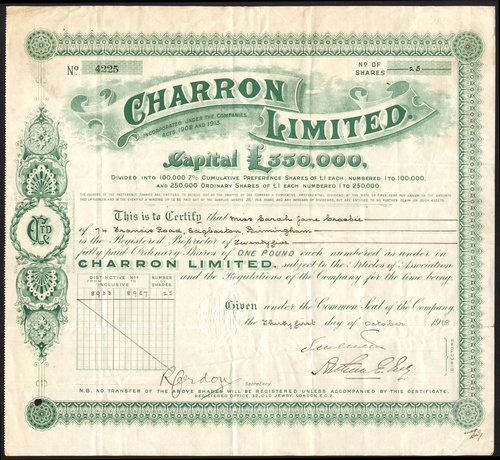 No 4225
No OF SHARES 25
CHARRON LIMITED.
INCORPORATED UNDER THE COMPANIES ACTS, 1908 AND 1913.
Capital £350,000,
DIVIDED INTO 100,000 7% CUMULATIVE PREFERENCE SHARES OF £1 EACH, NUMBERED 1 TO 100,000,
AND 250,000 ORDINARY SHARES OF £1 EACH NUMBERED 1 TO 250,000.
This is to Certify that Miss Sarah Jane
of 74 Francis Road, Edgbaston Birmingham
is the Registered Proprietor of Twentyfive
fully paid Ordinary Shares of ONE POUND each numbered as under in
CHARRON LIMITED. subject to the Articles of Association
and the Regulations of the Company for the time being.
DISTINCTIVE Nos INCLUSIVE
NUMBER OF SHARES
25
LTD
Given under the Common Seal of the Company
the Thirtyfirst day of October 1918
DIRECTORS
Secretary
N.B. NO TRANSFER OF THE ABOVE SHARES WILL BE REGISTERED UNLESS ACCOMPANIED BY THIS CERTIFICATE.
REGISTERED OFFICE 32, OLD JEWRY, LONDON, E.C.2.